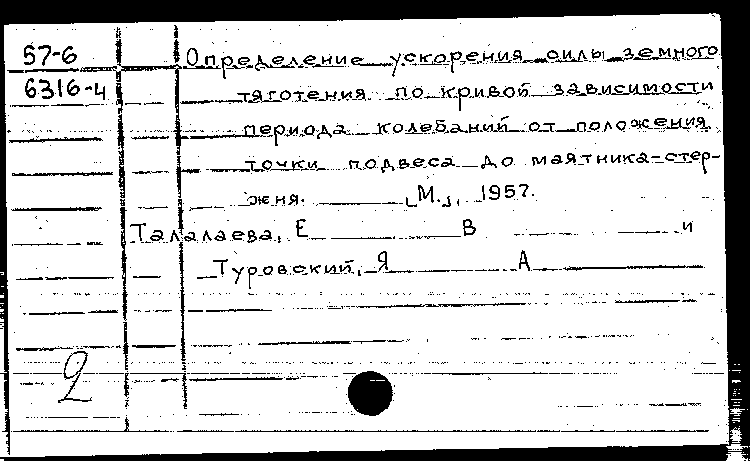 57-6
6316-4
Определение ускорения силы земного
тяготения по кривой зависимости
периода колебаний от положения
точки подвеса до маятника-стер-
жня. [М.], 1957.
Талалаева, Е В и
Туровский, Я А
2